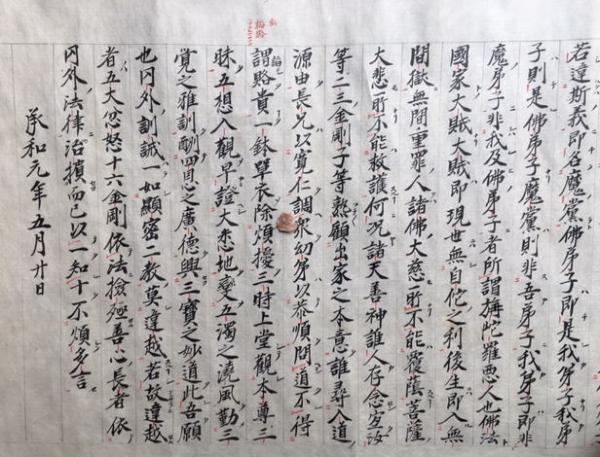 若違斯我即名魔黨佛弟子即是我弟子我弟
子則是佛弟子魔黨則非吾弟子我弟子即非
魔弟子非我及佛弟子者所謂旃陀羅悪人也佛法
國家大賊大賊即現世無自佗之利後生即入無
間獄無間重罪人諸佛大慈所不能覆蔭菩薩
大悲所不能救護何況諸天善神誰人存念宜汝
等二三金剛子等熟顧出家之本意誰尋入道
源由長兄以寛仁調衆幼弟以恭順問道不得
謂賂貴一鉢單衣除煩擾三時上堂觀本尊三
昧五想入觀早證大悉地變五濁之澆風勤三
覺之雅訓酬四恩之廣徳興三寶之妙道此吾願
也内外訓誡一如顯密二教莫違越若故違越
者五大忿怒十六金剛依法撿殛善心長者依
内外法律治擯而已以一知十不煩多言
承和元年五月廿日